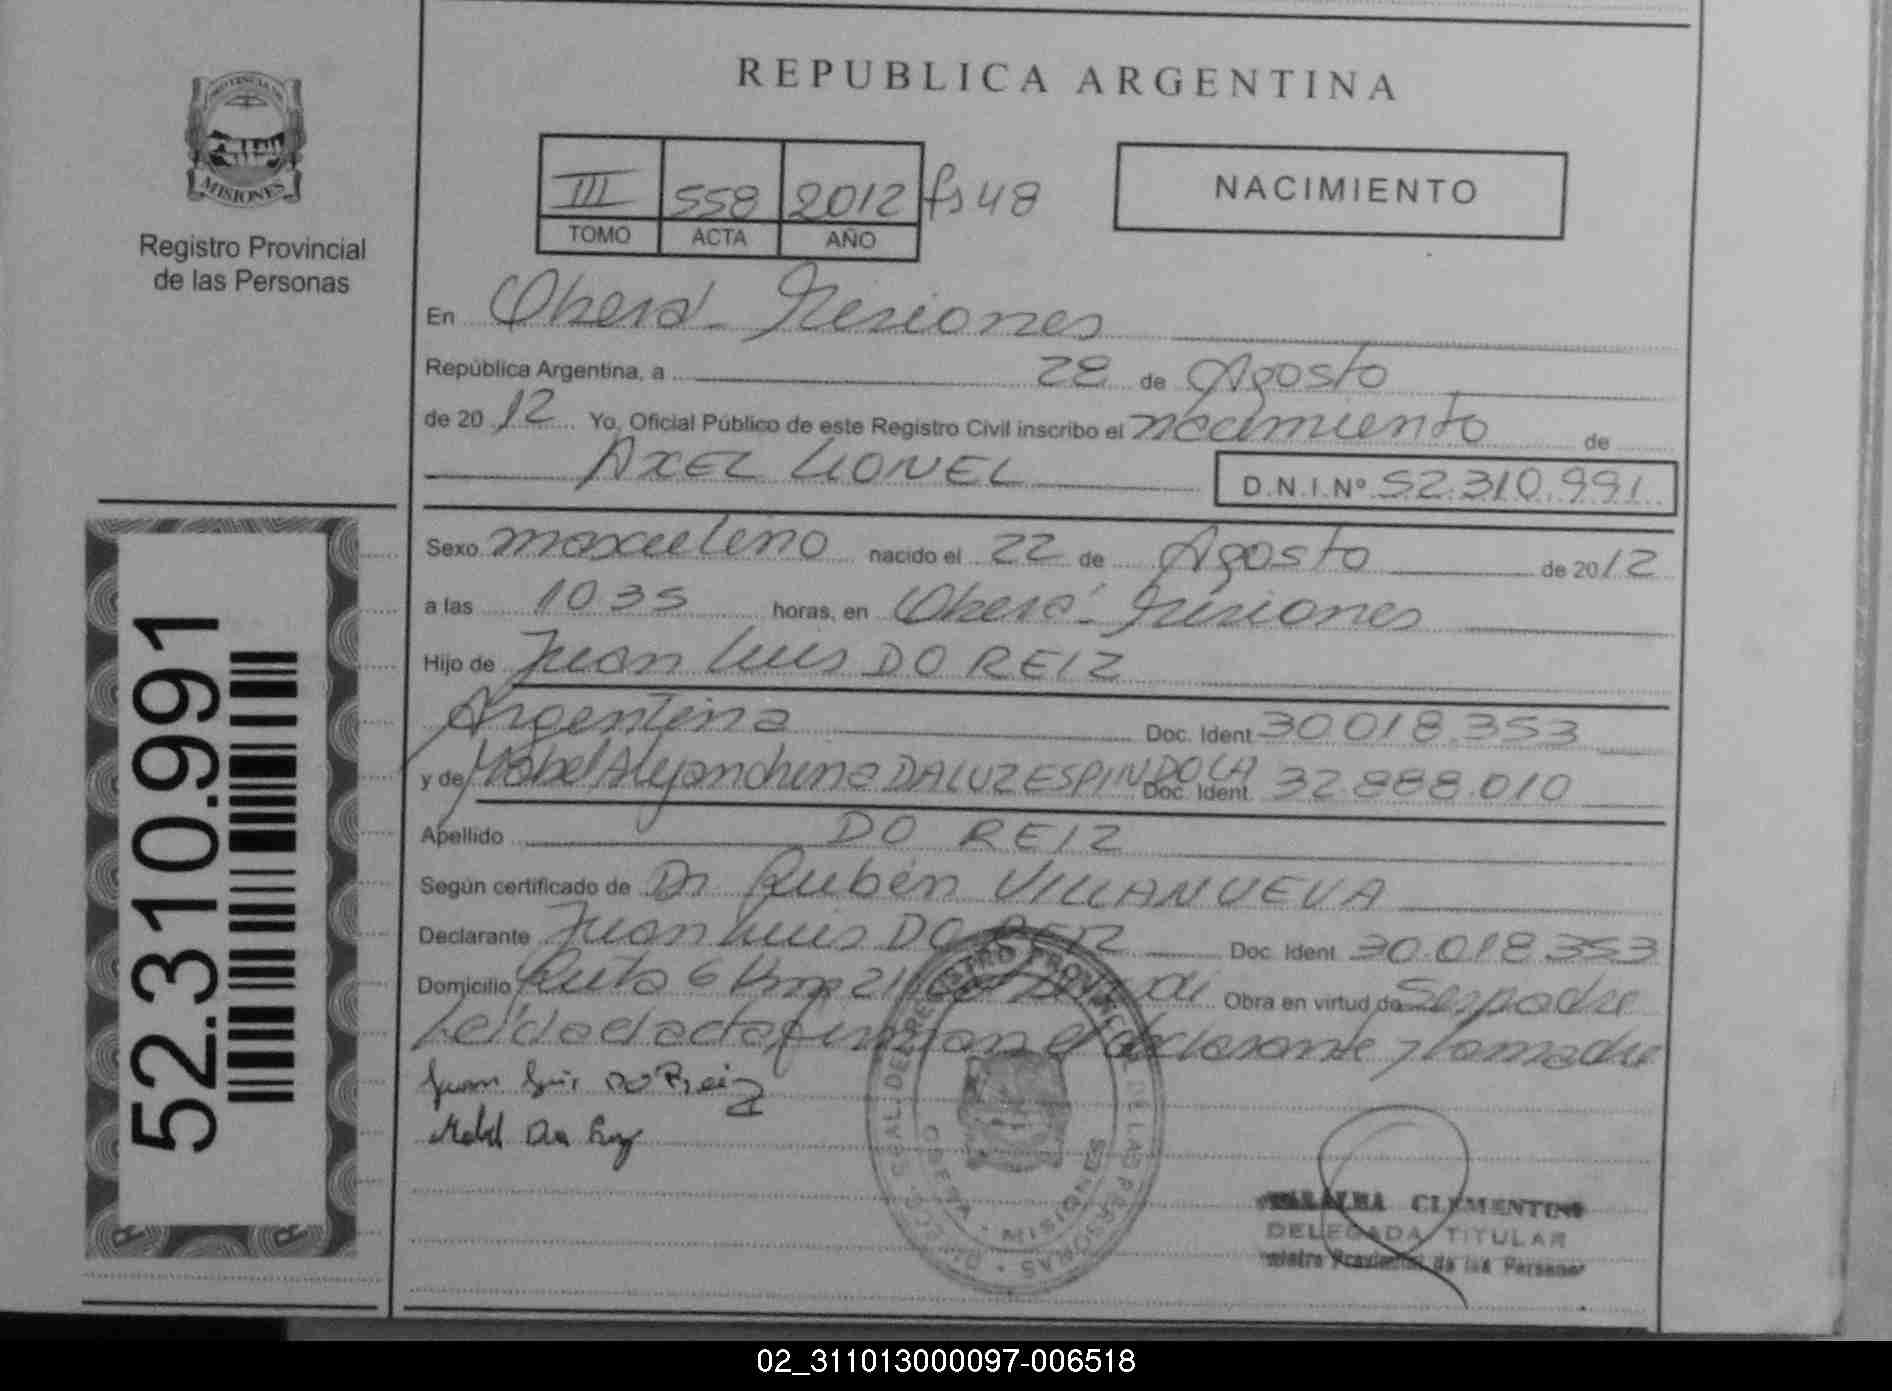 PROVINCIA DE
MISIONES
Registro Provincial
de las Personas
52.310.991
REPUBLICA ARGENTINA
III 558 2012 fs 48
TOMO ACTA AÑO
NACIMIENTO
En Oberá - Misiones
República Argentina, a 28 de Agosto
de 2012 Yo, Oficial Público de este Registro Civil inscribo el nacimiento de
AXEL LIONEL D.N.I.Nº 52.310.991
Sexo masculino nacido el 22 de Agosto de 2012
a las 1035 horas, en Oberá - Misiones
Hijo de Juan Luis DO REIZ
Argentina Doc. Ident 30.018.353
y de Mabel Alejandrina DA LUZ ESPINDOLA Doc. Ident. 32.888.010
Apellido DO REIZ
Según certificado de Dr Rubén VILLANUEVA
Declarante Juan Luis DO REIZ Doc. Ident 30.018.353
Domicilio Ruta 6 Km 21 Obra en virtud de Ser padre
Leida el acta firman el declarante y la madre
Juan Luis DO Reiz
Mabel Da Luz
REGISTRO PROVINCIAL DE LAS PERSONAS
OBERA MISIONES
CLEMENTINA
DELEGADA TITULAR
Registro Provincial de las Personas
02_311013000097-006518